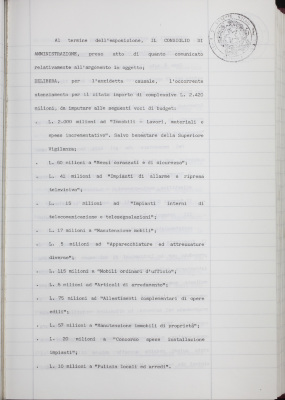 Al termine dell'esposizione, IL CONSIGLIO DI
AMMINISTRAZIONE, preso atto di quanto comunicato
relativamente all'argomento in oggetto;
DELIBERA, per l'anzidetta causale, l'occorrente
stanziamento per il citato importo di complessive L. 2.420
milioni, da imputare alle seguenti voci di budget:
. L. 2.000 milioni ad "Immobili - Lavori, materiali e
spese incrementative". Salvo benestare della Superiore
Vigilanza;
. L. 60 milioni a "Mezzi corazzati e di sicurezza";
. L. 41 milioni ad "Impianti di allarme e ripresa
televisiva";
. L. 10 milioni ad "Impianti interni di
telecomunicazione e telesegnalazioni";
. L. 17 milioni a "Manutenzione mobili";
. L. 5 milioni ad "Apparecchiature ed attrezzature
diverse";
. L. 115 milioni a "Mobili ordinari d'ufficio";
. L. milioni ad "Articoli di arredamento";
. L. 75 milioni ad "Allestimenti complementari di opere
edili";
. L. 67 milioni a "Manutenzione immobili di proprietà";
. L. 20 milioni a "Concorso spese installazione
impianti";
. L. 10 milioni a "Pulizia locali ed arredi".